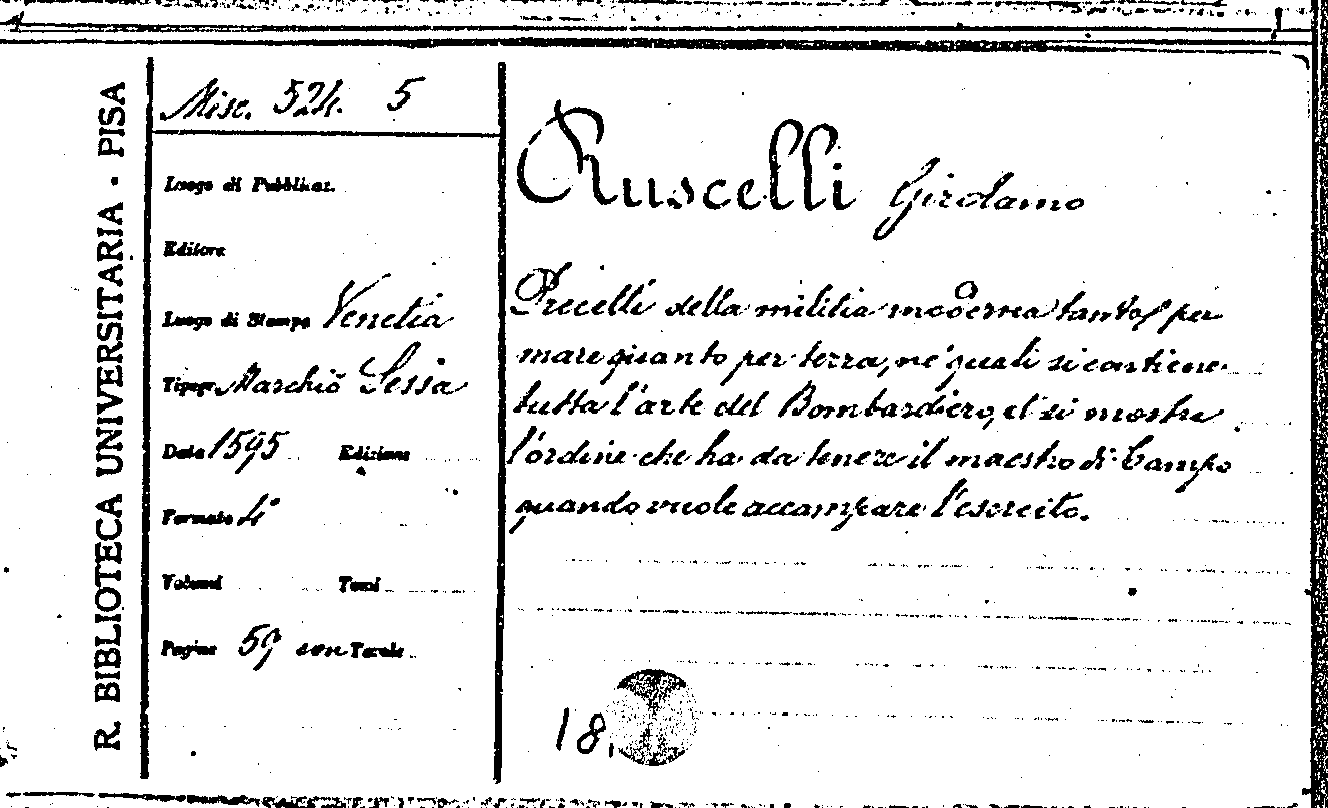 R. BIBLIOTECA UNIVERSITARIA - PISA
Misc. 524. 5
Luogo di Pubblicaz.
Editore
Luogo di Stampa Venetia
Tipogr. Marchiò Sessa
Data 1595 Edizione
Formato 4°
Volumi Tomi
Pagine 59 con Tavole
Ruscelli Girolamo
Precetti della militia moderna tanto per
mare quanto per terra, ne' quali si contiene
tutta l'arte del Bombardiero, et si mostra
l'ordine che ha da tenere il maestro di Campo
quando vuole accampare l'esercito.
18.